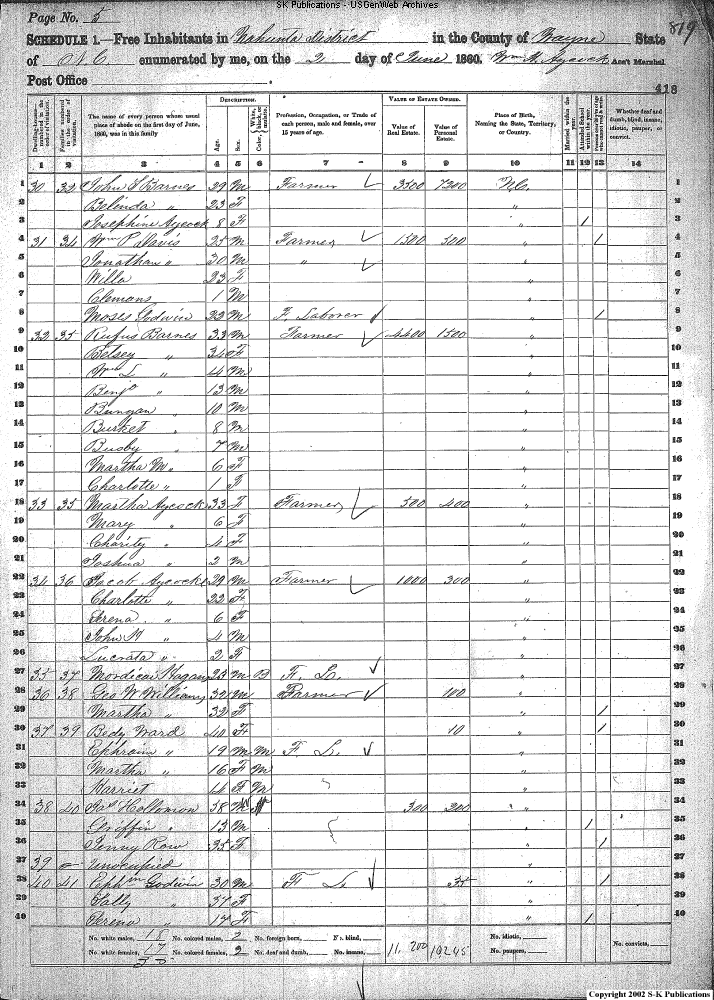 SK Publications - USGenWeb Archives
Page No. 5
819
SCHEDULE 1.—Free Inhabitants in Nahunta District in the County of Wayne State
of N.C. enumerated by me, on the 2 day of June 1860. Wm H. Aycock Ass't Marshal.
Post Office
418
Dwelling-houses numbered in the order of visitation. Families numbered in the order of visitation. The name of every person whose usual place of abode on the first day of June, 1860, was in this family DESCRIPTION. Age. Sex. Color, White, black, or mulatto. Profession, Occupation, or Trade of each person, male and female, over 15 years of age. VALUE OF ESTATE OWNED. Value of Real Estate. Value of Personal Estate. Place of Birth, Naming the State, Territory, or Country. Married within the year. Attended School within the year. Whether deaf and dumb, blind, insane, idiotic, pauper, or convict.
1 2 3 4 5 6 7 8 9 10 11 12 13 14
1 30 32 John S Barnes 29 M Farmer 3500 7200 N.C. 1
2 Belinda " 23 F " 2
3 Josephine Aycock 8 F / 3
4 31 34 Wm Davis 25 M Farmer 1500 500 " / 4
5 Jonathan " 30 M " " 5
6 Willa 23 F " 6
7 Clemons 1 M 7
8 Moses Godwin 22 M F. Laborer " / 8
9 32 35 Rufus Barnes 33 M Farmer 4400 1500 " 9
10 Betsey " 34 F " 10
11 Wm L " 14 M " 11
12 Benj " 13 M " 12
13 Bunyan " 10 M 13
14 Burket " 8 M " 14
15 Busby " 7 M " 15
16 Martha M " 6 F " 16
17 Charlotte " 1 F 17
18 33 35 Martha Aycock 33 F Farmer 500 400 " 18
19 Mary " 6 F " 19
20 Charity " 4 F " 20
21 Joshua " 2 M " 21
22 34 36 Jacob Aycock 29 M Farmer 1000 300 " 22
23 Charlotte " 22 F " 23
24 Serena " 6 F " 24
25 John H " 4 M " 25
26 Lucrata " 2 F " 26
27 35 37 Mordicai Hagans 23 M B F. L. " 27
28 36 38 Geo W Williams 32 M Farmer 100 " 28
29 Martha " 32 F " / 29
30 37 39 Bedy Ward 40 F 10 " / 30
31 Ephraim " 19 M M F. L. " 31
32 Martha " 16 F M " 32
33 Harriet 4 F M " 33
34 38 40 Jas Hollomon 58 M 300 200 " 34
35 Griffin " 13 M " / 35
36 Penny Row 35 F " / 36
37 39 Unocupied 37
38 40 41 Ephm Godwin 30 M F L. 35 " / 38
39 Sally " 37 F " 39
40 Serena " 17 F " / 40
No. white males, 18 No. colored males, 2 No. foreign born, No. blind, No. idiotic, No. convicts,
No. white females, 17 No. colored females, 2 No. deaf and dumb, No. insane, 11,200 10245 No. paupers,
35
Copyright 2002 S-K Publications